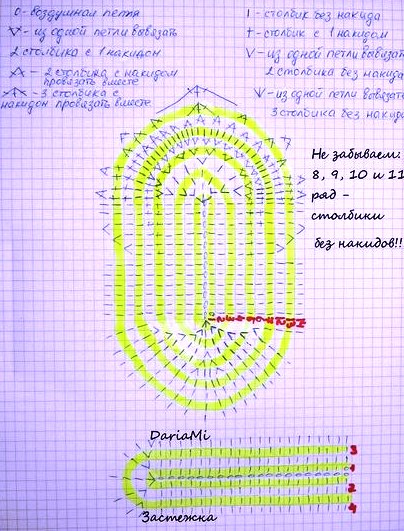 0 - воздушная петля
V - из одной петли вывязать
2 столбика с 1 накидом
- 2 столбика с накидом
провязать вместе
- 3 столбика с
накидом провязать вместе
I - столбик без накида
† - столбик с 1 накидом
V - из одной петли вывязать
2 столбика без накида
V - из одной петли вывязать
3 столбика без накида
Не забываем:
8, 9, 10 и 11
ряд -
столбики
без накидов!!
DariaMi
3
1
2
4
Застежка